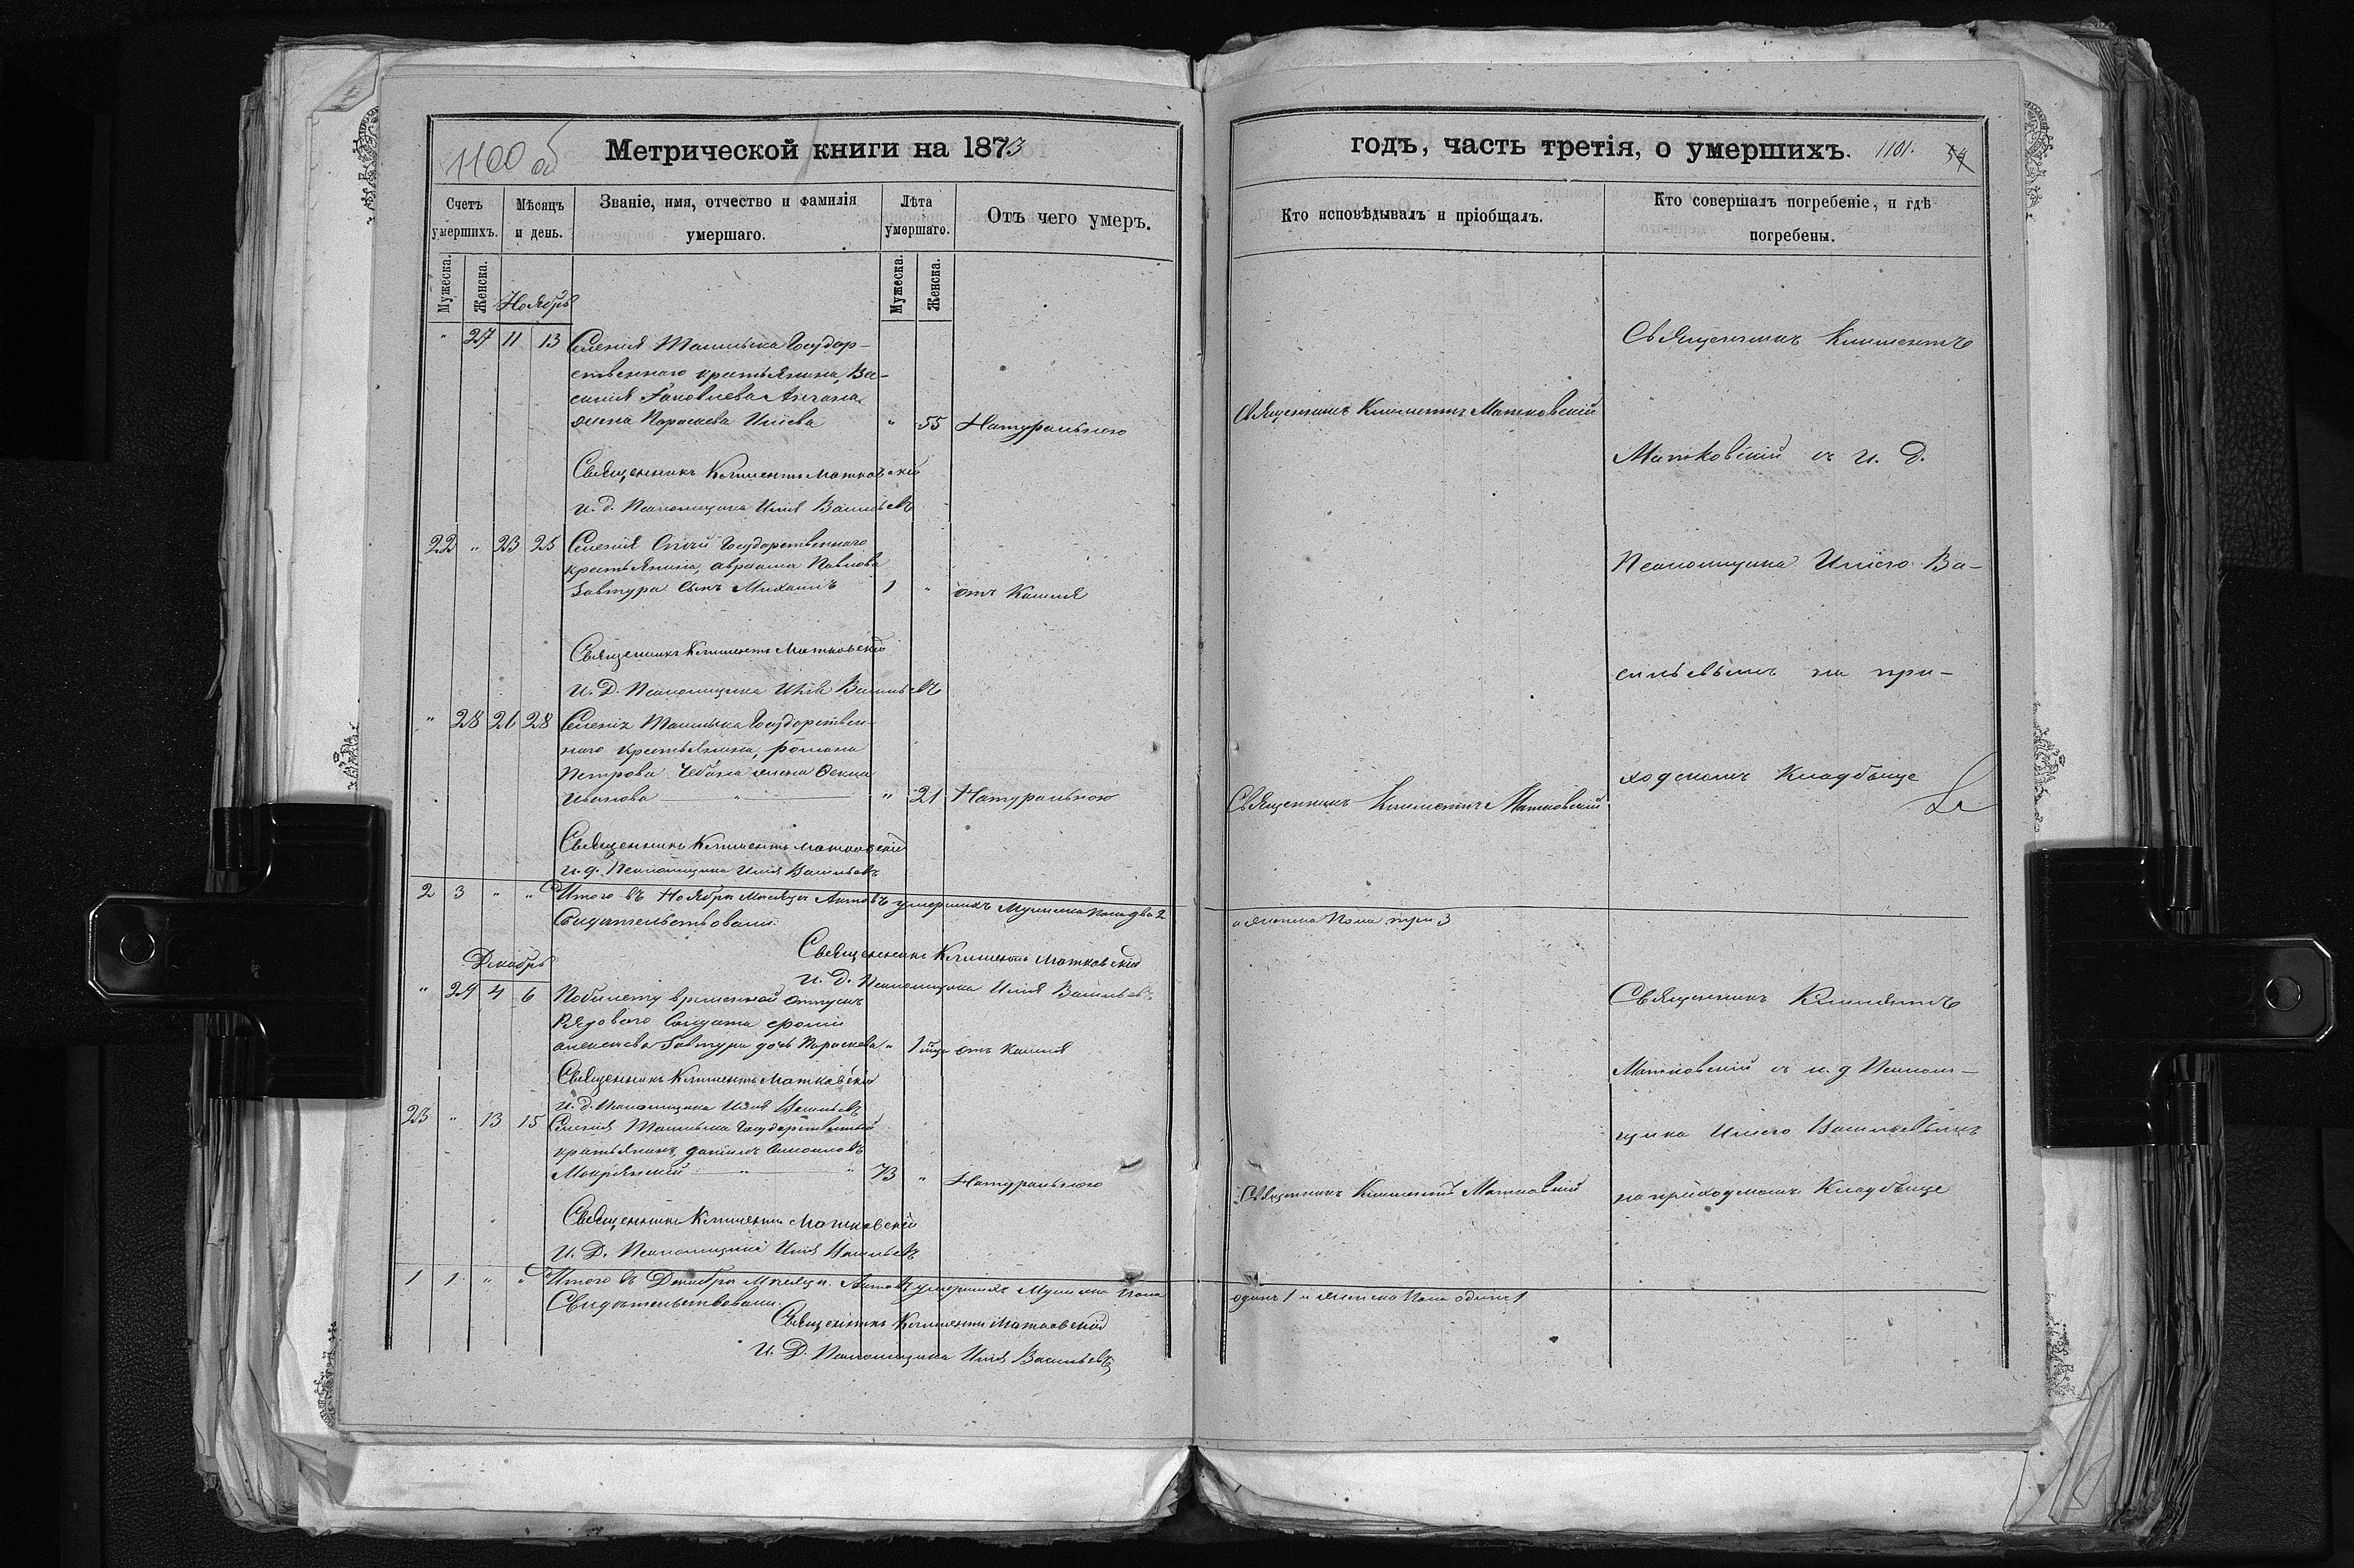 1100 об
Метрической книги на 1873
Счетъ умершихъ.
Мѣсяцъ и день.
Званіе, имя, отчество и фамилія умершаго.
Лѣта умершаго.
Отъ чего умеръ.
Мужеска.
Женска.
Мужеска.
Женска.
Ноябрь
" 27 11 13 Селенія Ташлыка Государ-
ственнаго крестьянина, Ва-
силія Яковлева
жена Параскева Иліева " 55 Натуральною
Священникъ Климентъ Матковскій
И. д. Псаломщика Илія Васильевъ
22 " 23 25 Селенія Спеи Государственнаго
крестьянина, Авраама Павлова
Завтура сынъ Михаилъ 1 " отъ Кашля
Священникъ Климентъ Матковскій
И. Д. Псаломщика Илія Васильевъ
" 28 26 28 Селенія Ташлыка Государствен-
наго Крестьянина, романа
Петрова Чебана жена
Иванова " " 21 Натуральною
Священникъ Климентъ Матковскій
И. д. Псаломщика Илія Васильевъ
2 3 " " Итого въ Ноябрѣ Мѣсяцѣ Актовъ умершихъ Мужеска Пола два 2
Свидѣтельствовали:
Священникъ Климентъ Матковскій
И. Д. Псаломщика Илія Васильевъ
Декабрь
" 29 4 6 По билету временной отпускъ
Рядоваго Солдата
Алексѣева Завтура дочь Параскева " 1 отъ кашля
Священникъ Климентъ Матковскій
И. д. Псаломщика Илія Васильевъ
23 " 13 15 Селенія Ташлыка Государственный
крестьянинъ, даниилъ
Мокрянскій " " 73 " Натуральною
Священникъ Климентъ Матковскій
И. Д. Псаломщика Илія Васильевъ
1 1 " " Итого въ Декабрѣ Мѣсяцѣ Актовъ умершихъ Мужеска Пола
Свидѣтельствовали:
Священникъ Климентъ Матковскій
И. Д. Псаломщика Илія Васильевъ
годъ, часть третія, о умершихъ.
1101.
Кто исповѣдывалъ и пріобщалъ.
Кто совершалъ погребеніе, и гдѣ погребены.
Священникъ Климентъ
Священникъ Климентъ Матковскій
Матковскій съ И. Д.
Псаломщика Иліею Ва-
сильевымъ на при-
ходскомъ Кладбище
Священникъ Климентъ Матковскій
а женска Пола три 3
Священникъ Климентъ
Матковскій съ и. д Псалом-
щика Иліею Васильевымъ
Священникъ Климентъ Матковскій
на приходскомъ Кладбище
одинъ 1 и женска Пола одинъ 1